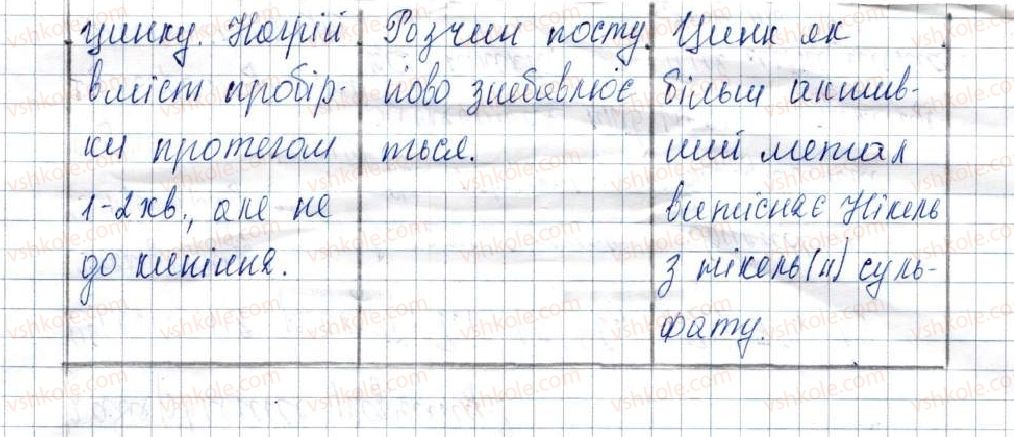 цинку. Нагрій
вміст пробір-
ки протягом
1-2 хв., але не
до кипіння.
Розчин посту
пово знебавлює
ться.
Цинк як
більш актив-
ний метал
витиснає Нікель
з нікель(II) суль-
фату.